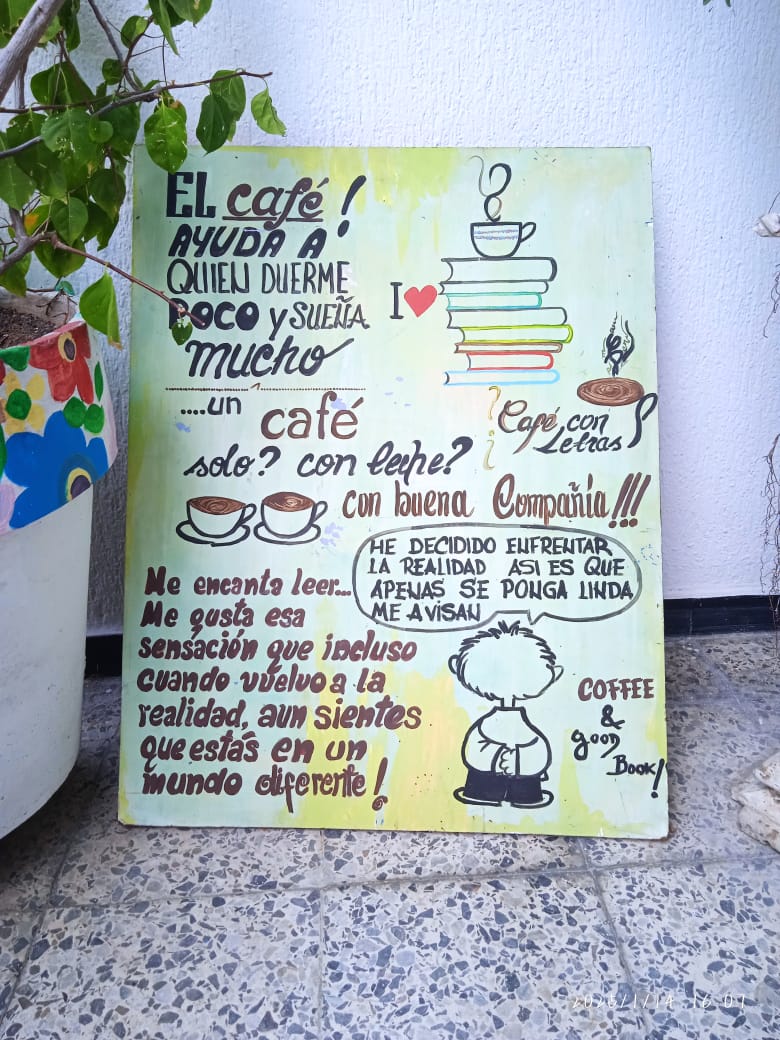 EL café!
AYUDA A
QUIEN DUERME
POCO y SUEÑA
mucho
I
....un
café
solo? con leche?
Café con
Letras
con buena Compañia!!!
HE DECIDIDO ENFRENTAR
LA REALIDAD ASI ES QUE
APENAS SE PONGA LINDA
ME AVISAN
Me encanta leer...
Me gusta esa
sensación que incluso
cuando vuelvo a la
realidad, aun sientes
que estás en un
mundo diferente!
COFFEE
&
good
Book!
2025/1/14 16:01